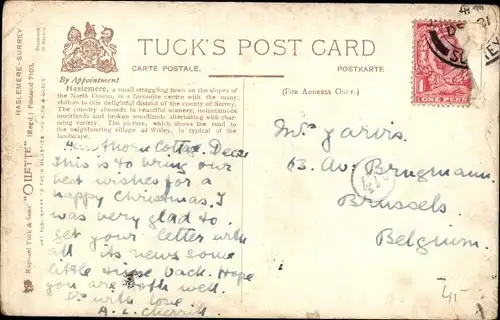 TUCK'S POST CARD
CARTE POSTALE. POSTKARTE.
By Appointment.
(FOR ADDRESS ONLY.)
Haslemere, a small straggling town on the slopes
of the North Downs, is a favourite centre with the many
visitors to this delightful district of the county of Surrey.
The country abounds in beautiful scenery, mountainous
moorlands and broken woodlands alternating with char-
ming variety. The picture, which shows the road to
the neighbouring village of Witley, is typical of the
landscape.
Hawthorn Cottage. Dear
this is to bring our
best wishes for a
happy Christmas. I
was very glad to
get your letter with
all its news some
little time back. Hope
you are both well.
with love
A. L. Cherrill
Mrs Jarvis.
63. Av. Brugmann.
Brussels
Belgium.
ONE PENNY
HASLEMERE-SURREY
Raphael Tuck & Sons' "OILETTE" (Regd.) Postcard 7103.